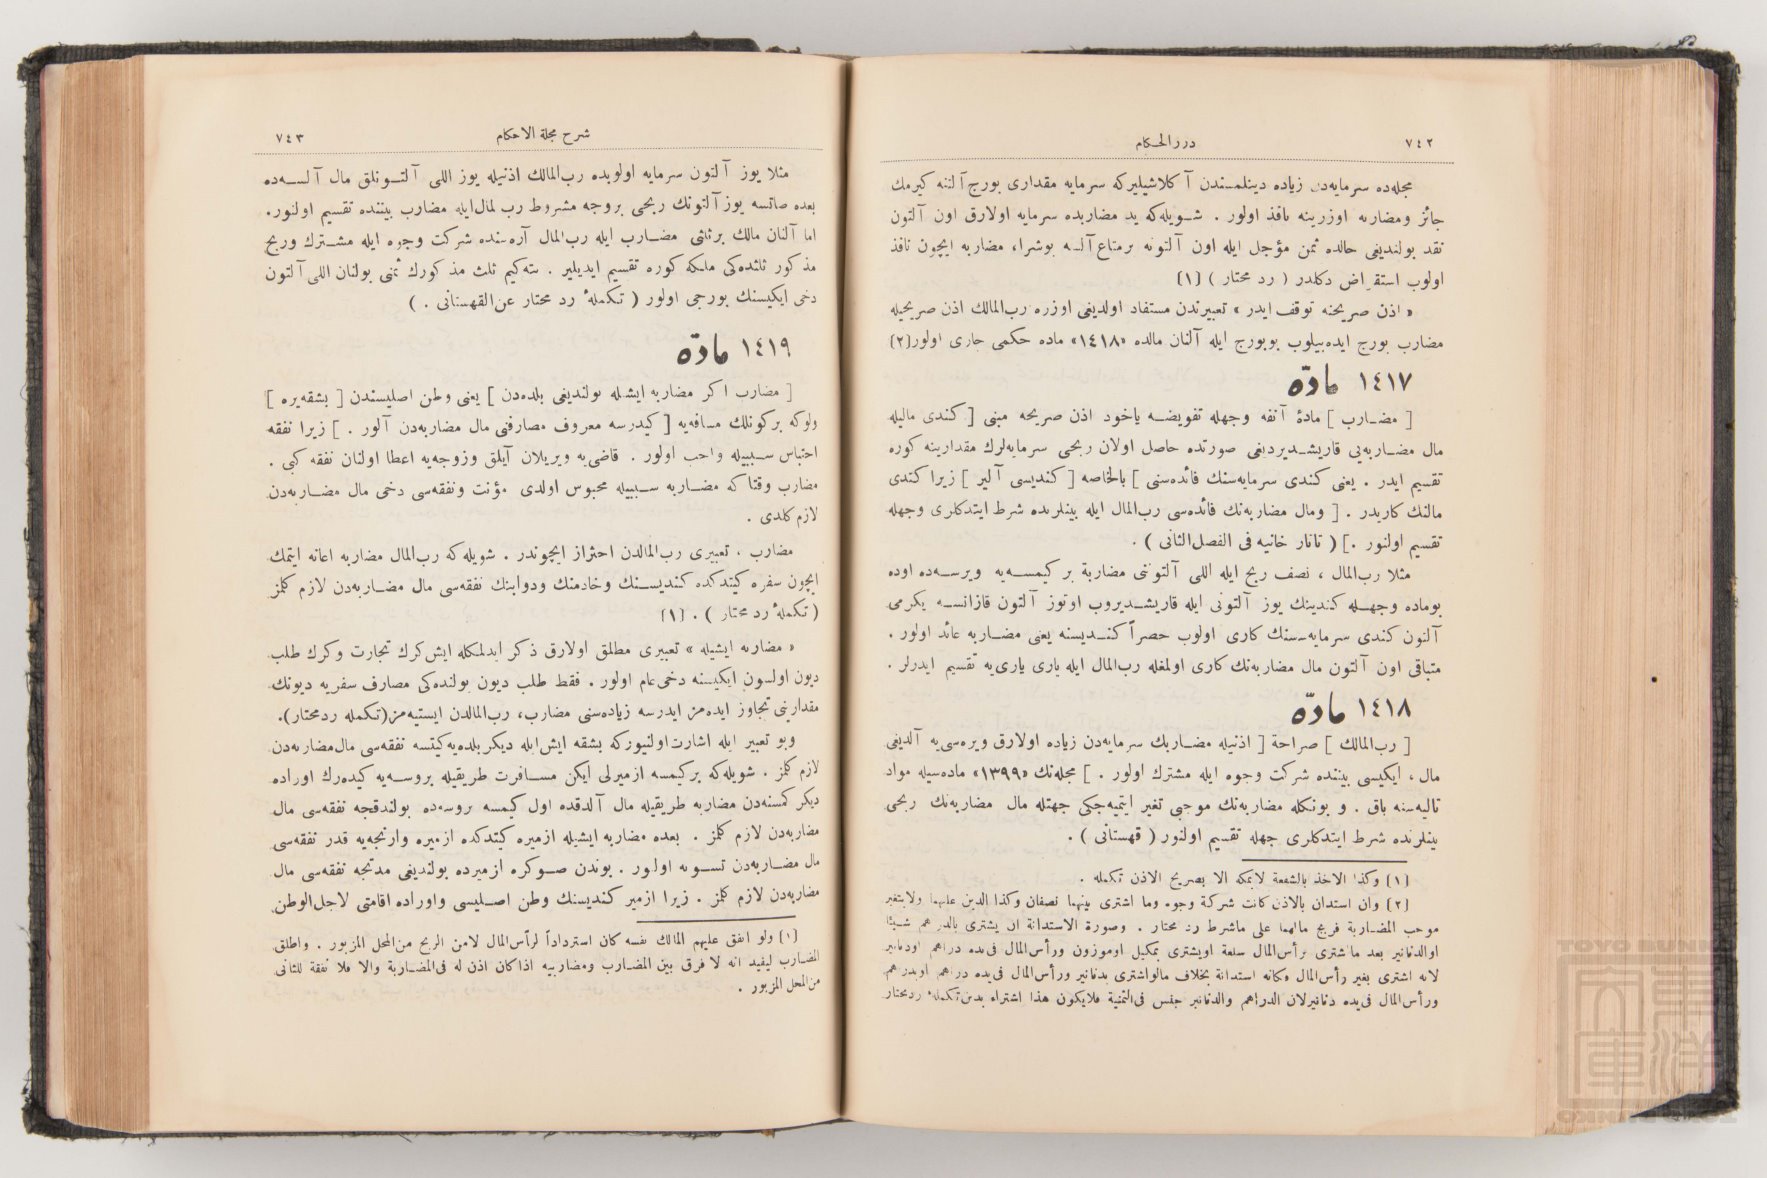 ٧٤٢
دررالحكام
مجله‌ده سرمايه‌دن زياده دينلمسندن آكلاشيليركه سرمايه مقدارى بورج آلننه كيرمك
جائز ومضاربه اوزرينه نافذ اولور . شـويله‌كه يد مضاربده سرمايه اولارق اون آلتون
نقد بولنديغى حالده ثمن مؤجل ايله اون آلتونه برمتاع آلسه بوشراء مضاربه ايچون نافذ
اولوب استقراض دكلدر ( رد محتار ) [١]
« اذن صريحنه توقف ايدر » تعبيرندن مستفاد اولديغى اوزره رب‌المالك اذن صريحيله
مضارب بورج ايده‌بيلوب بوبورج ايله آلنان مالده «١٤١٨» ماده حكمى جارى اولور[٢]
١٤١٧ مادّه
[ مضـارب ] مادۀ آنفه وجهله تفويضـه ياخود اذن صريحه مبنى [ كندى ماليله
مال مضـاربه‌يى قاريشـديرديغى صورتده حاصل اولان ربحى سرمايه‌لرك مقدارينه كوره
تقسيم ايدر . يعنى كندى سرمايه‌سنك فائده‌سنى ] بالخاصه [ كنديسى آلير ] زيرا كندى
مالنك كاريدر . [ ومال مضاربه‌نك فائده‌سى رب‌المال ايله بينلرنده شرط ايتدكلرى وجهله
تقسيم اولنور .] ( تاتار خانيه فى الفصل‌الثانى ) .
مثلا رب‌المال ، نصف ربح ايله اللى آلتونى مضاربة بر كيمسـه‌يه ويرسـه‌ده اوده
بوماده وجهـله كندينك يوز آلتونى ايله قاريشـديروب اوتوز آلتون قازانسـه يكرمى
آلتون كندى سرمايه‌سنك كارى اولوب حصراً كنـديسنه يعنى مضـاربه عائد اولور .
متباقى اون آلتون مال مضاربه‌نك كارى اولمغله رب‌المال ايله يارى يارى‌يه تقسيم ايدرلر .
١٤١٨ مادّه
[ رب‌المالك ] صراحة [ اذنيله مضـاربك سرمايه‌دن زياده اولارق ويره‌سى‌يه آلديغى
مال ، ايكيسى بيننده شركت وجوه ايله مشترك اولور . ] مجله‌نك «١٣٩٩» ماده‌سيله مواد
تاليه‌سنه باق . و بونكله مضاربه‌نك موجبى تغير ايتميه‌جكى جهتله مال مضاربه‌نك ربحى
بينلرنده شرط ايتدكلرى جهله تقسيم اولنور ( قهستانى ) .
[١] وكذا الاخذ بالشفعة لايملكه الا بصريح الاذن تكمله .
[٢] وان استدان بالاذن كانت شركة وجوه وما اشترى بينهما نصفان وكذا الدين عليهما ولايتغير
موجب المضـاربة فربح مالهما على ماشرط رد محتار . وصورة الاستدانة ان يشترى بالدراهم شـيئا
اوالدنانير بعد ما شترى برأس‌المال سلعة اويشترى بمكيل اوموزون ورأس‌المال فى‌يده دراهم اودنانير
لانه اشترى بغير رأس‌المال فكانه استدانة بخلاف مالواشترى بدنانير ورأس‌المال فى‌يده دراهم اوبدراهم
ورأس‌المال فى‌يده دنانيرلان الدراهم والدنانير جنس فى‌الثمنية فلايكون هذا اشتراء بدين تكملهٔ ردمحتار
٧٤٣
شرح مجلة الاحكام
مثلا يوز آلتون سرمايه اولوبده رب‌المالك اذنيله يوز اللى آلتـونلق مال آلسـه‌ده
بعده صاتسه يوز آلتونك ربحى بروجه مشروط رب لمال‌ايله مضارب بيننده تقسيم اولنور.
اما آلنان مالك برثلثى مضـارب ايله رب‌المال آره‌سنده شركت وجوه ايله مشـترك وربح
مذكور ثلثده‌كى ملكه كوره تقسيم ايديلير . نته‌كيم ثلث مذكورك ثمنى بولنان اللى آلتون
دخى ايكيسنك بورجى اولور ( تكملهٔ رد محتار عن‌القهستانى . )
١٤١٩ مادّه
[ مضارب اكر مضاربه ايشله بولنديغى بلده‌دن ] يعنى وطن اصليسندن [ بشقه‌يره ]
ولوكه بركونلك مسافه‌يه [ كيدرسه معروف مصارفنى مال مضاربه‌دن آلور . ] زيرا نفقه
احتباس سـببيله واجب اولور . قاضى‌يه ويريلان آيلق وزوجه‌يه اعطا اولنان نفقه كبى .
مضارب وقتا كه مضـاربه سـببيله محبوس اولدى مؤنت ونفقه‌سى دخى مال مضـاربه‌دن
لازم كلدى .
مضارب ، تعبيرى رب‌المالدن احتراز ايچوندر . شويله‌كه رب‌المال مضاربه اعانه ايتمك
ايچون سفره كيتدكده كنديسـنك وخادمنك ودوابنك نفقه‌سى مال مضـاربه‌دن لازم كلمز
( تكملهٔ رد محتار ) . [١]
« مضاربه ايشيله » تعبيرى مطلق اولارق ذكر ايدلمكله ايش كرك تجارت وكرك طلب
ديون اولسون ايكيسنه دخى‌عام اولور . فقط طلب ديون بولنده‌كى مصارف سفريه ديونك
مقدارينى تجاوز ايده‌مز ايدرسه زياده‌سنى مضارب، رب‌المالدن ايستيه‌مز(تكمله ردمحتار).
وبو تعبير ايله اشارت‌اولنيوركه بشقه ايش‌ايله ديكر بلده‌يه‌كيتسه نفقه‌سى مال‌مضاربه‌دن
لازم كلمز . شويله‌كه بركيمسه ازميرلى ايكن مسـافرت طريقيله بروسـه‌يه كيده‌رك اوراده
ديكر كمسنه‌دن مضاربه طريقيله مال آلدقده اول كيمسه بروسه‌ده بولندقجه نفقه‌سى مال
مضاربه‌دن لازم كلمز . بعده مضاربه ايشيله ازميره كيتدكده ازميره وارنجه‌يه قدر نفقه‌سى
مال مضـاربه‌دن تسـويه اولور . بوندن صـوكره ازميرده بولنديغى مدتجه نفقه‌سى مال
مضاربه‌دن لازم كلمز . زيرا ازمير كنديسنك وطن اصـليسى واوراده اقامتى لاجل‌الوطن
[١] ولو انفق عليهم المالك نفسه كان استرداداً لرأس‌المال لامن الربح من‌المحل المزبور . واطلق
المضـارب ليفيد انه لا فرق بين المضـارب ومضاربيه اذاكان اذن له فى‌المضـاربة والا فلا نفقة للثانى
من‌المحل المزبور .
TOYO BUNKO